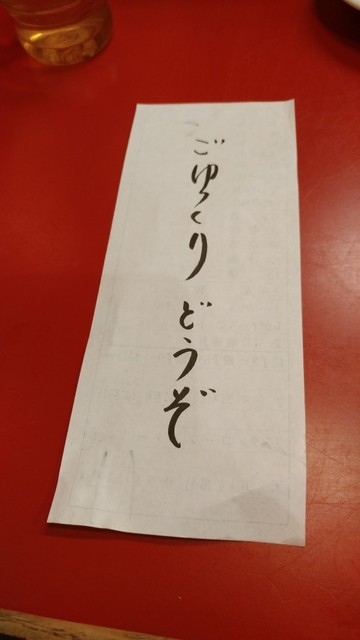 ごゆっくり どうぞ